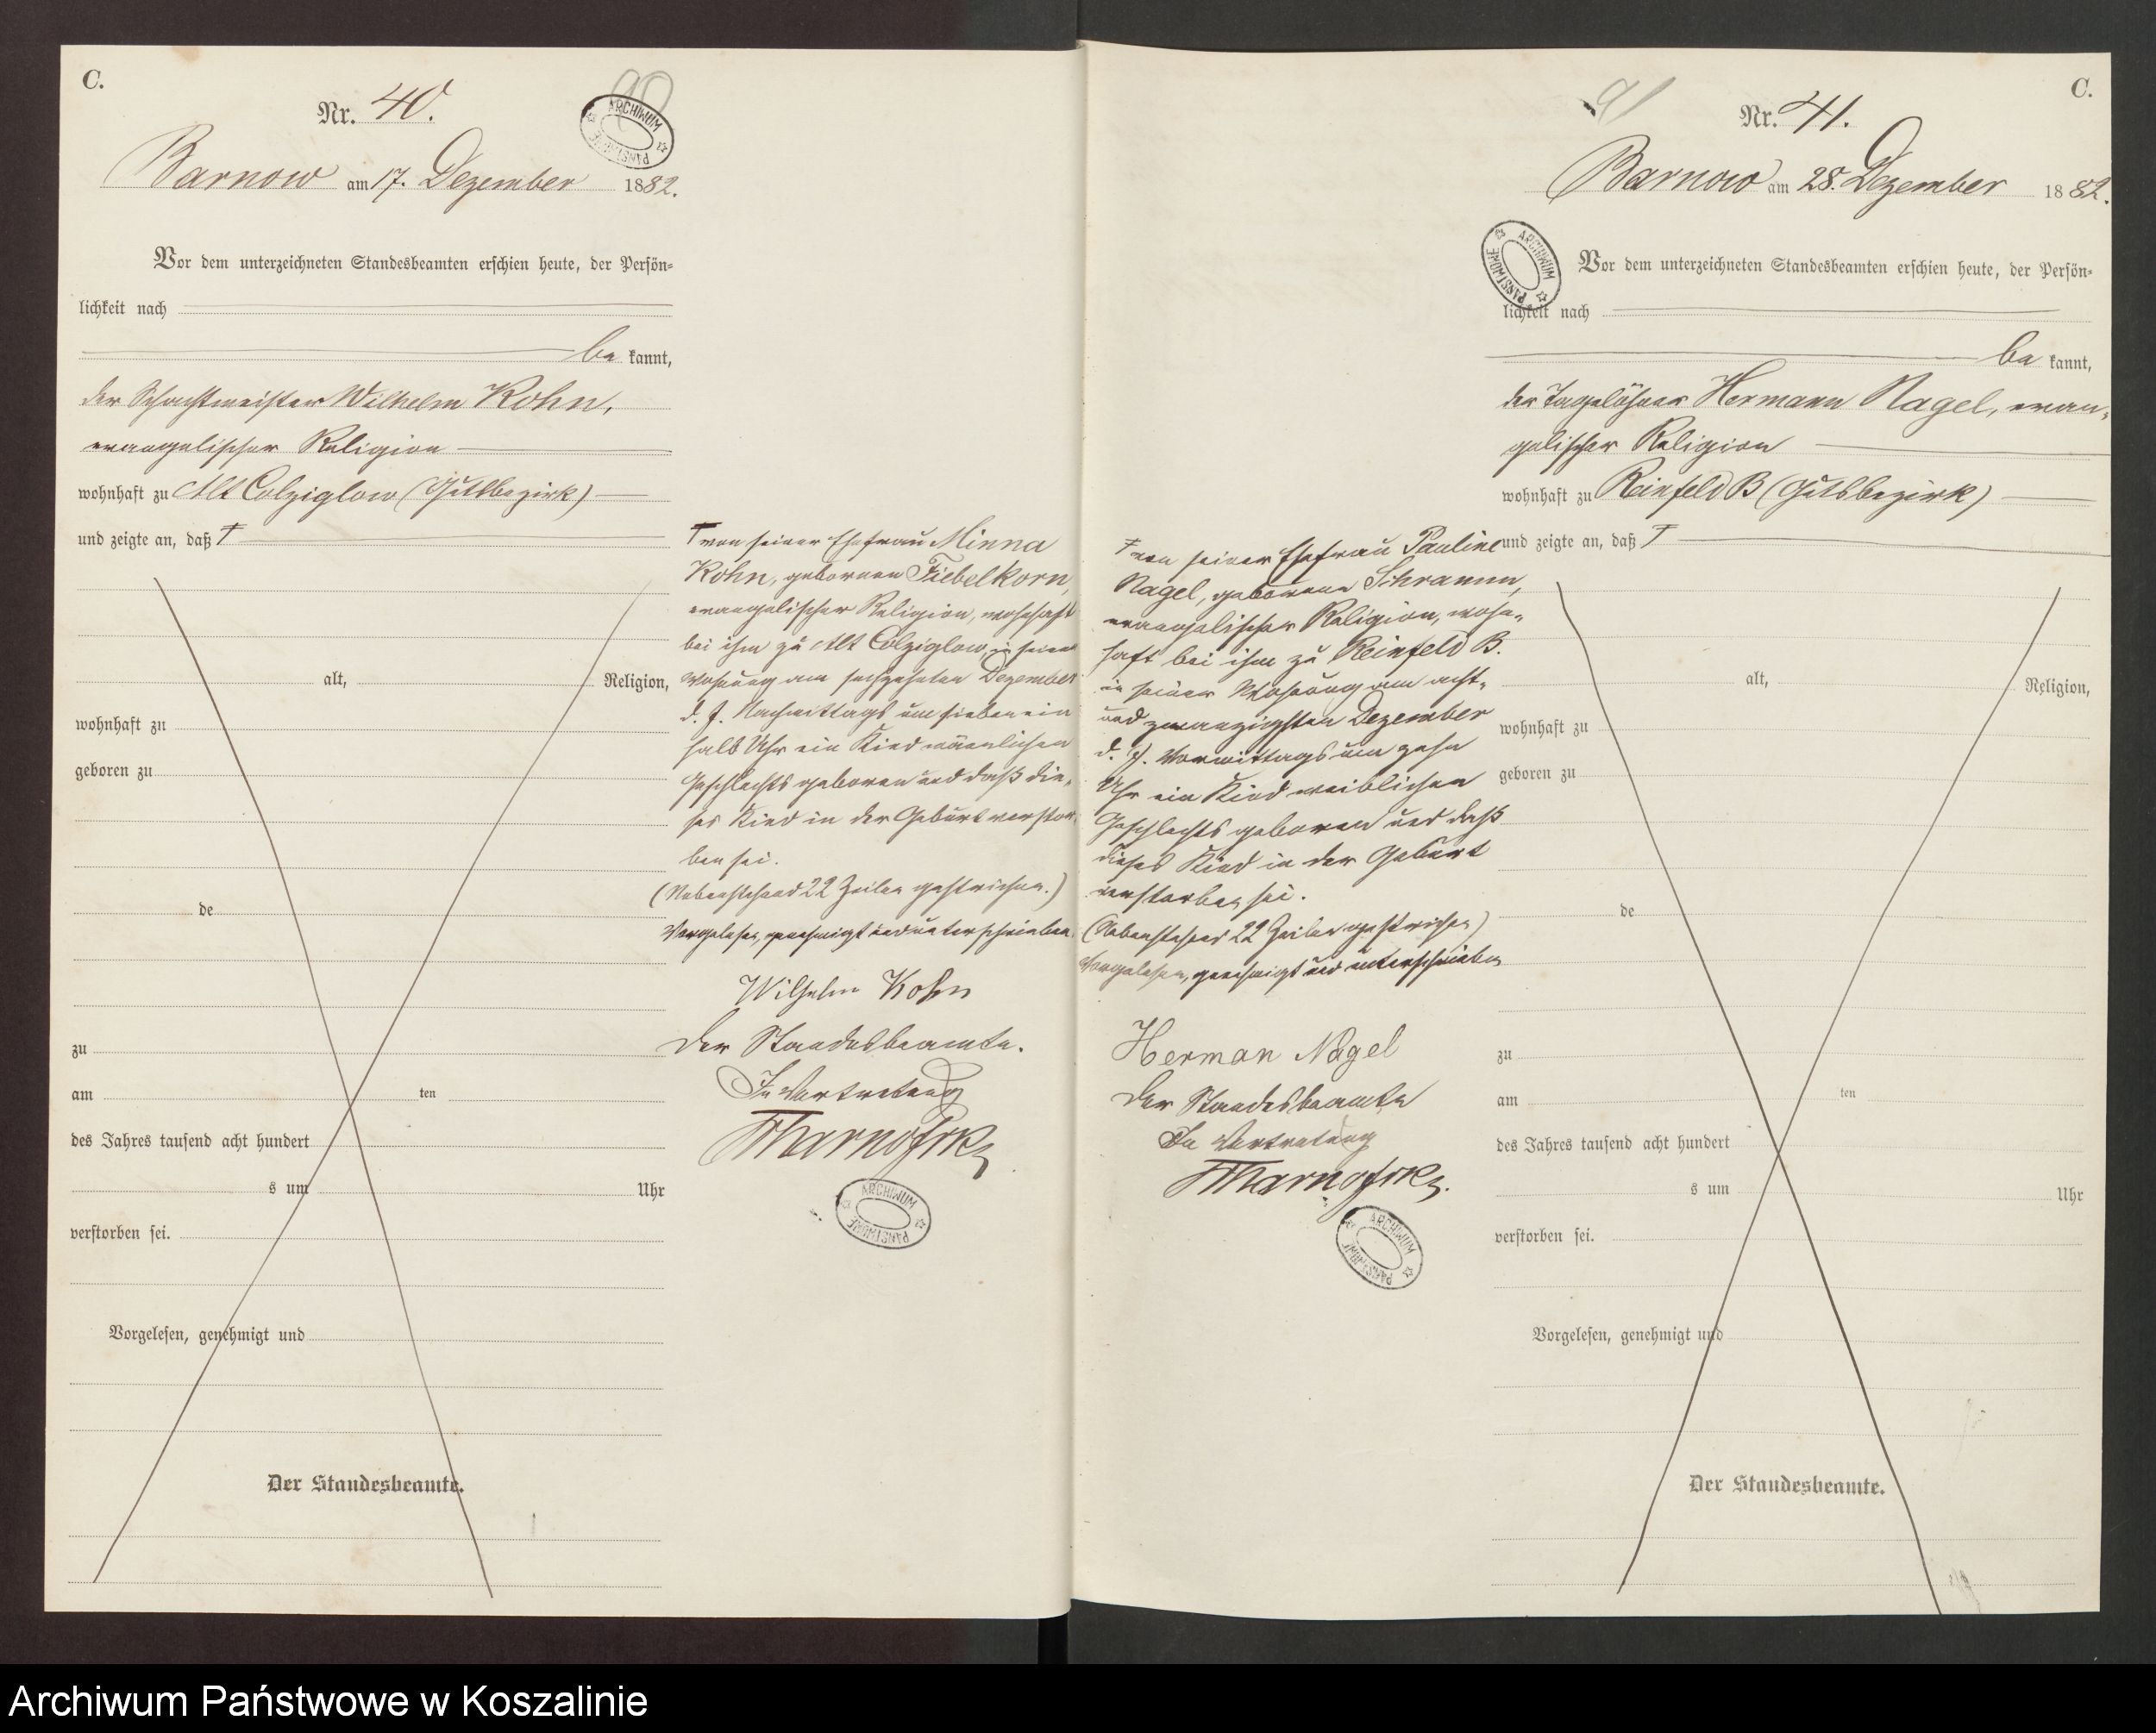 C.
Nr. 40.
90
ARCHIWUM PAŃSTWOWE
Barnow am 17. Dezember 1882.
Vor dem unterzeichneten Standesbeamten erschien heute, der Persön-
lichkeit nach
be kannt,
der Schachtmeister Wilhelm Kohn,
evangelischer Religion
wohnhaft zu Alt Colziglow (Gutsbezirk)
und zeigte an, daß †
alt, Religion,
wohnhaft zu
geboren zu
de
zu
am ten
des Jahres tausend acht hundert
s um Uhr
verstorben sei.
Vorgelesen, genehmigt und
Der Standesbeamte.
† von seiner Ehefrau Minna
Kohn, geborenen Fiebelkorn,
evangelischer Religion, wohnhaft
bei ihm zu Alt Colziglow, in seiner
Wohnung am sechszehnten Dezember
d. J. Nachmittags um sieben ein
halb Uhr ein Kind männlichen
Geschlechts geboren und daß die-
ses Kind in der Geburt verstor-
ben sei.
(Nebenstehend 22 Zeilen gestrichen.)
Vorgelesen, genehmigt und unterschrieben.
Wilhelm Kohn
Der Standesbeamte.
In Vertretung
ARCHIWUM PAŃSTWOWE
91
Nr. 41.
C.
Barnow am 28. Dezember 1882.
ARCHIWUM PAŃSTWOWE
Vor dem unterzeichneten Standesbeamten erschien heute, der Persön-
lichkeit nach
be kannt,
der Tagelöhner Hermann Nagel, evan-
gelischer Religion
wohnhaft zu Reinfeld B (Gutsbezirk)
und zeigte an, daß †
† von seiner Ehefrau Pauline
Nagel, geborenen Schramm,
evangelischer Religion, wohn-
haft bei ihm zu Reinfeld B.
in seiner Wohnung am acht-
und zwanzigsten Dezember
d. J. Vormittags um zehn
Uhr ein Kind weiblichen
Geschlechts geboren und daß
dieses Kind in der Geburt
verstorben sei.
(Nebenstehend 22 Zeilen gestrichen)
Vorgelesen, genehmigt und unterschrieben
Herman Nagel
Der Standesbeamte
In Vertretung
ARCHIWUM PAŃSTWOWE
alt, Religion,
wohnhaft zu
geboren zu
de
zu
am ten
des Jahres tausend acht hundert
s um Uhr
verstorben sei.
Vorgelesen, genehmigt und
Der Standesbeamte.
Archiwum Państwowe w Koszalinie